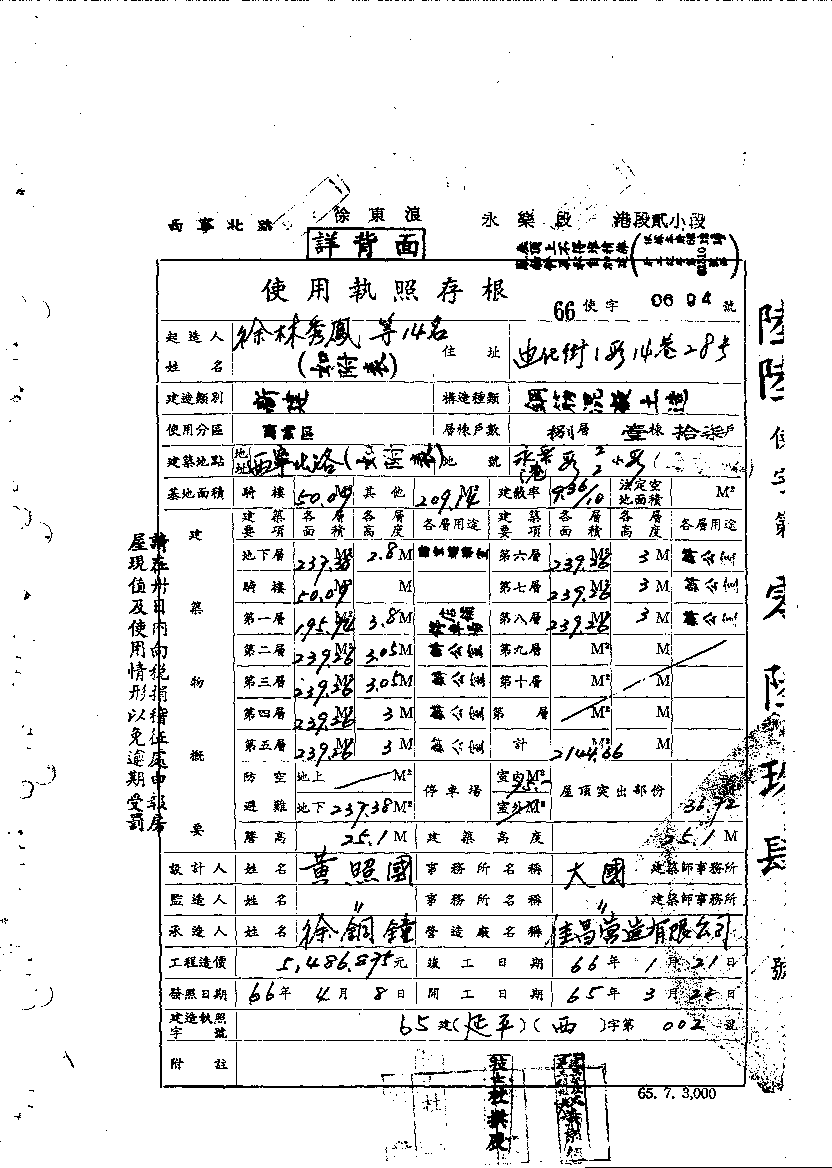 西寧北號 徐東浪 永樂段 港段貳小段
詳背面
使用執照存根
66使字 0694 號
起造人姓名 徐林秀鳳 等14名 (如附表) 住址 迪化街1段14巷28号
建造類別 新建 構造種類 鋼筋混凝土造
使用分區 商業區 層棟戶數 捌層 壹棟 拾柒戶
建築地點 地址 西寧北路 地號 永樂段
基地面積 騎樓 50.09M² 其他 209.14 建蔽率 法定空地面積 M²
建築要項 各層面積 各層高度 各層用途 建築要項 各層面積 各層高度 各層用途
地下層 237.38M² 2.8M 第六層 239.26M² 3M 辦公室
騎樓 50.09M² M 第七層 239.26M² 3M 辦公室
第一層 195.94M² 3.8M 第八層 239.26M² 3M 辦公室
第二層 239.26M² 3.05M 辦公室 第九層 M² M
第三層 239.26M² 3.05M 辦公室 第十層 M² M
第四層 239.26M² 3M 辦公室 第 層 M² M
第五層 239.26M² 3M 辦公室 計 2144.66M²
建築物概要
防空避難 地上 M² 停車場 室內M² 屋頂突出部份 36.92
地下 237.38M² 室外M²
簷高 25.1M 建築高度 25.1M
設計人 姓名 黃照國 事務所名稱 大國 建築師事務所
監造人 姓名 〃 事務所名稱 〃 建築師事務所
承造人 姓名 徐銅鐘 營造廠名稱 佳昌營造有限公司
工程造價 5,486,875元 竣工日期 66年1月21日
發照日期 66年4月8日 開工日期 65年3月22日
建造執照字號 65建(延平)(西)字第002號
附註
65. 7. 3,000
請在卅日內向稅捐稽征處申報房
屋現值及使用情形以免逾期受罰
陸陸使字第零陸玖肆號